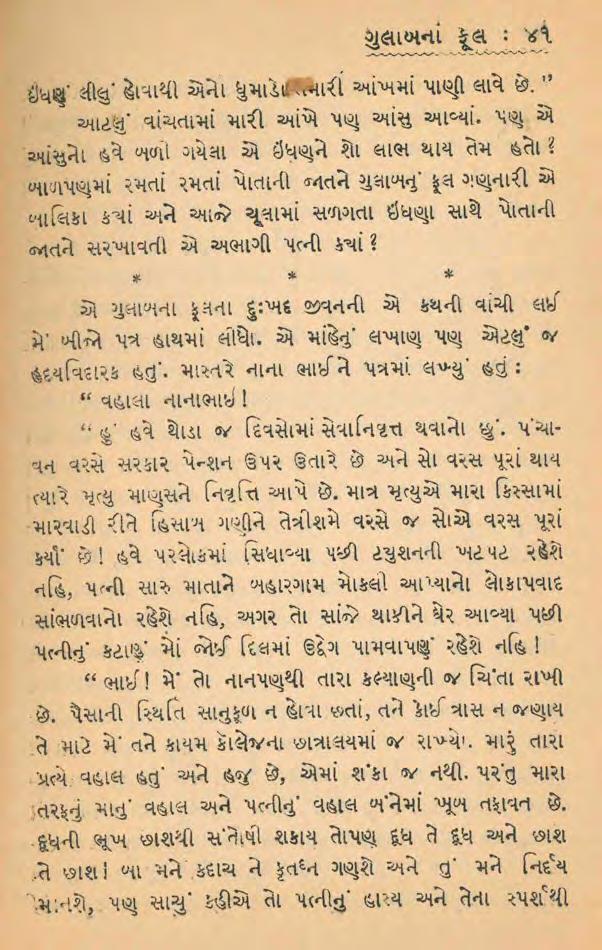 ગુલાબનાં ફૂલ : ૪૧
ઇંધણું લીલું હોવાથી એનો ધુમાડો તમારી આંખમાં પાણી લાવે છે.”
આટલું વાંચતામાં મારી આંખે પણ આંસુ આવ્યાં. પણ એ
આંસુનો હવે બળી ગયેલા એ ઇંધણુને શો લાભ થાય તેમ હતો ?
બાળપણમાં રમતાં રમતાં પોતાની જાતને ગુલાબનું ફૂલ ગણનારી એ
બાલિકા ક્યાં અને આજે ચૂલામાં સળગતા ઇંધણા સાથે પોતાની
જાતને સરખાવતી એ અભાગી પત્ની ક્યાં ?
* * *
એ ગુલાબના ફૂલના દુઃખદ જીવનની એ કથની વાંચી લઈ
મેં બીજો પત્ર હાથમાં લીધો. એ માંહેનું લખાણ પણ એટલું જ
હૃદયવિદારક હતું. માસ્તરે નાના ભાઈને પત્રમાં લખ્યું હતું :
“ વહાલા નાનાભાઈ !
“ હું હવે થોડા જ દિવસોમાં સેવાનિવૃત્ત થવાનો છું. પંચા-
વન વરસે સરકાર પેન્શન ઉપર ઉતારે છે અને સો વરસ પૂરાં થાય
ત્યારે મૃત્યુ માણસને નિવૃત્તિ આપે છે. માત્ર મૃત્યુએ મારા કિસ્સામાં
મારવાડી રીતે હિસાબ ગણીને તેત્રીશમે વરસે જ સોએ વરસ પૂરાં
કર્યાં છે ! હવે પરલોકમાં સિધાવ્યા પછી ટ્યુશનની ખટપટ રહેશે
નહિ, પત્ની સારુ માતાને બહારગામ મોકલી આપ્યાનો લોકાપવાદ
સાંભળવાનો રહેશે નહિ, અગર તો સાંજે થાકીને ઘેર આવ્યા પછી
પત્નીનું કટાણું મોં જોઈ દિલમાં ઉદ્વેગ પામવાપણું રહેશે નહિ !
“ ભાઈ ! મેં તો નાનપણથી તારા કલ્યાણની જ ચિંતા રાખી
છે. પૈસાની સ્થિતિ સાનુકૂળ ન હોવા છતાં, તને કોઈ ત્રાસ ન જણાય
તે માટે મેં તને કાયમ કૉલેજના છાત્રાલયમાં જ રાખ્યો. મારું તારા
પ્રત્યે વહાલ હતું અને હજુ છે, એમાં શંકા જ નથી. પરંતુ મારા
તરફનું માનું વહાલ અને પત્નીનું વહાલ બંનેમાં ખૂબ તફાવત છે.
દૂધની ભૂખ છાશથી સંતોષી શકાય તોપણ દૂધ તે દૂધ અને છાશ
તે છાશ ! બા મને કદાચ ને કૃતઘ્ન ગણશે અને તું મને નિર્દય
માનશે, પણ સાચું કહીએ તો પત્નીનું હાસ્ય અને તેના સ્પર્શથી